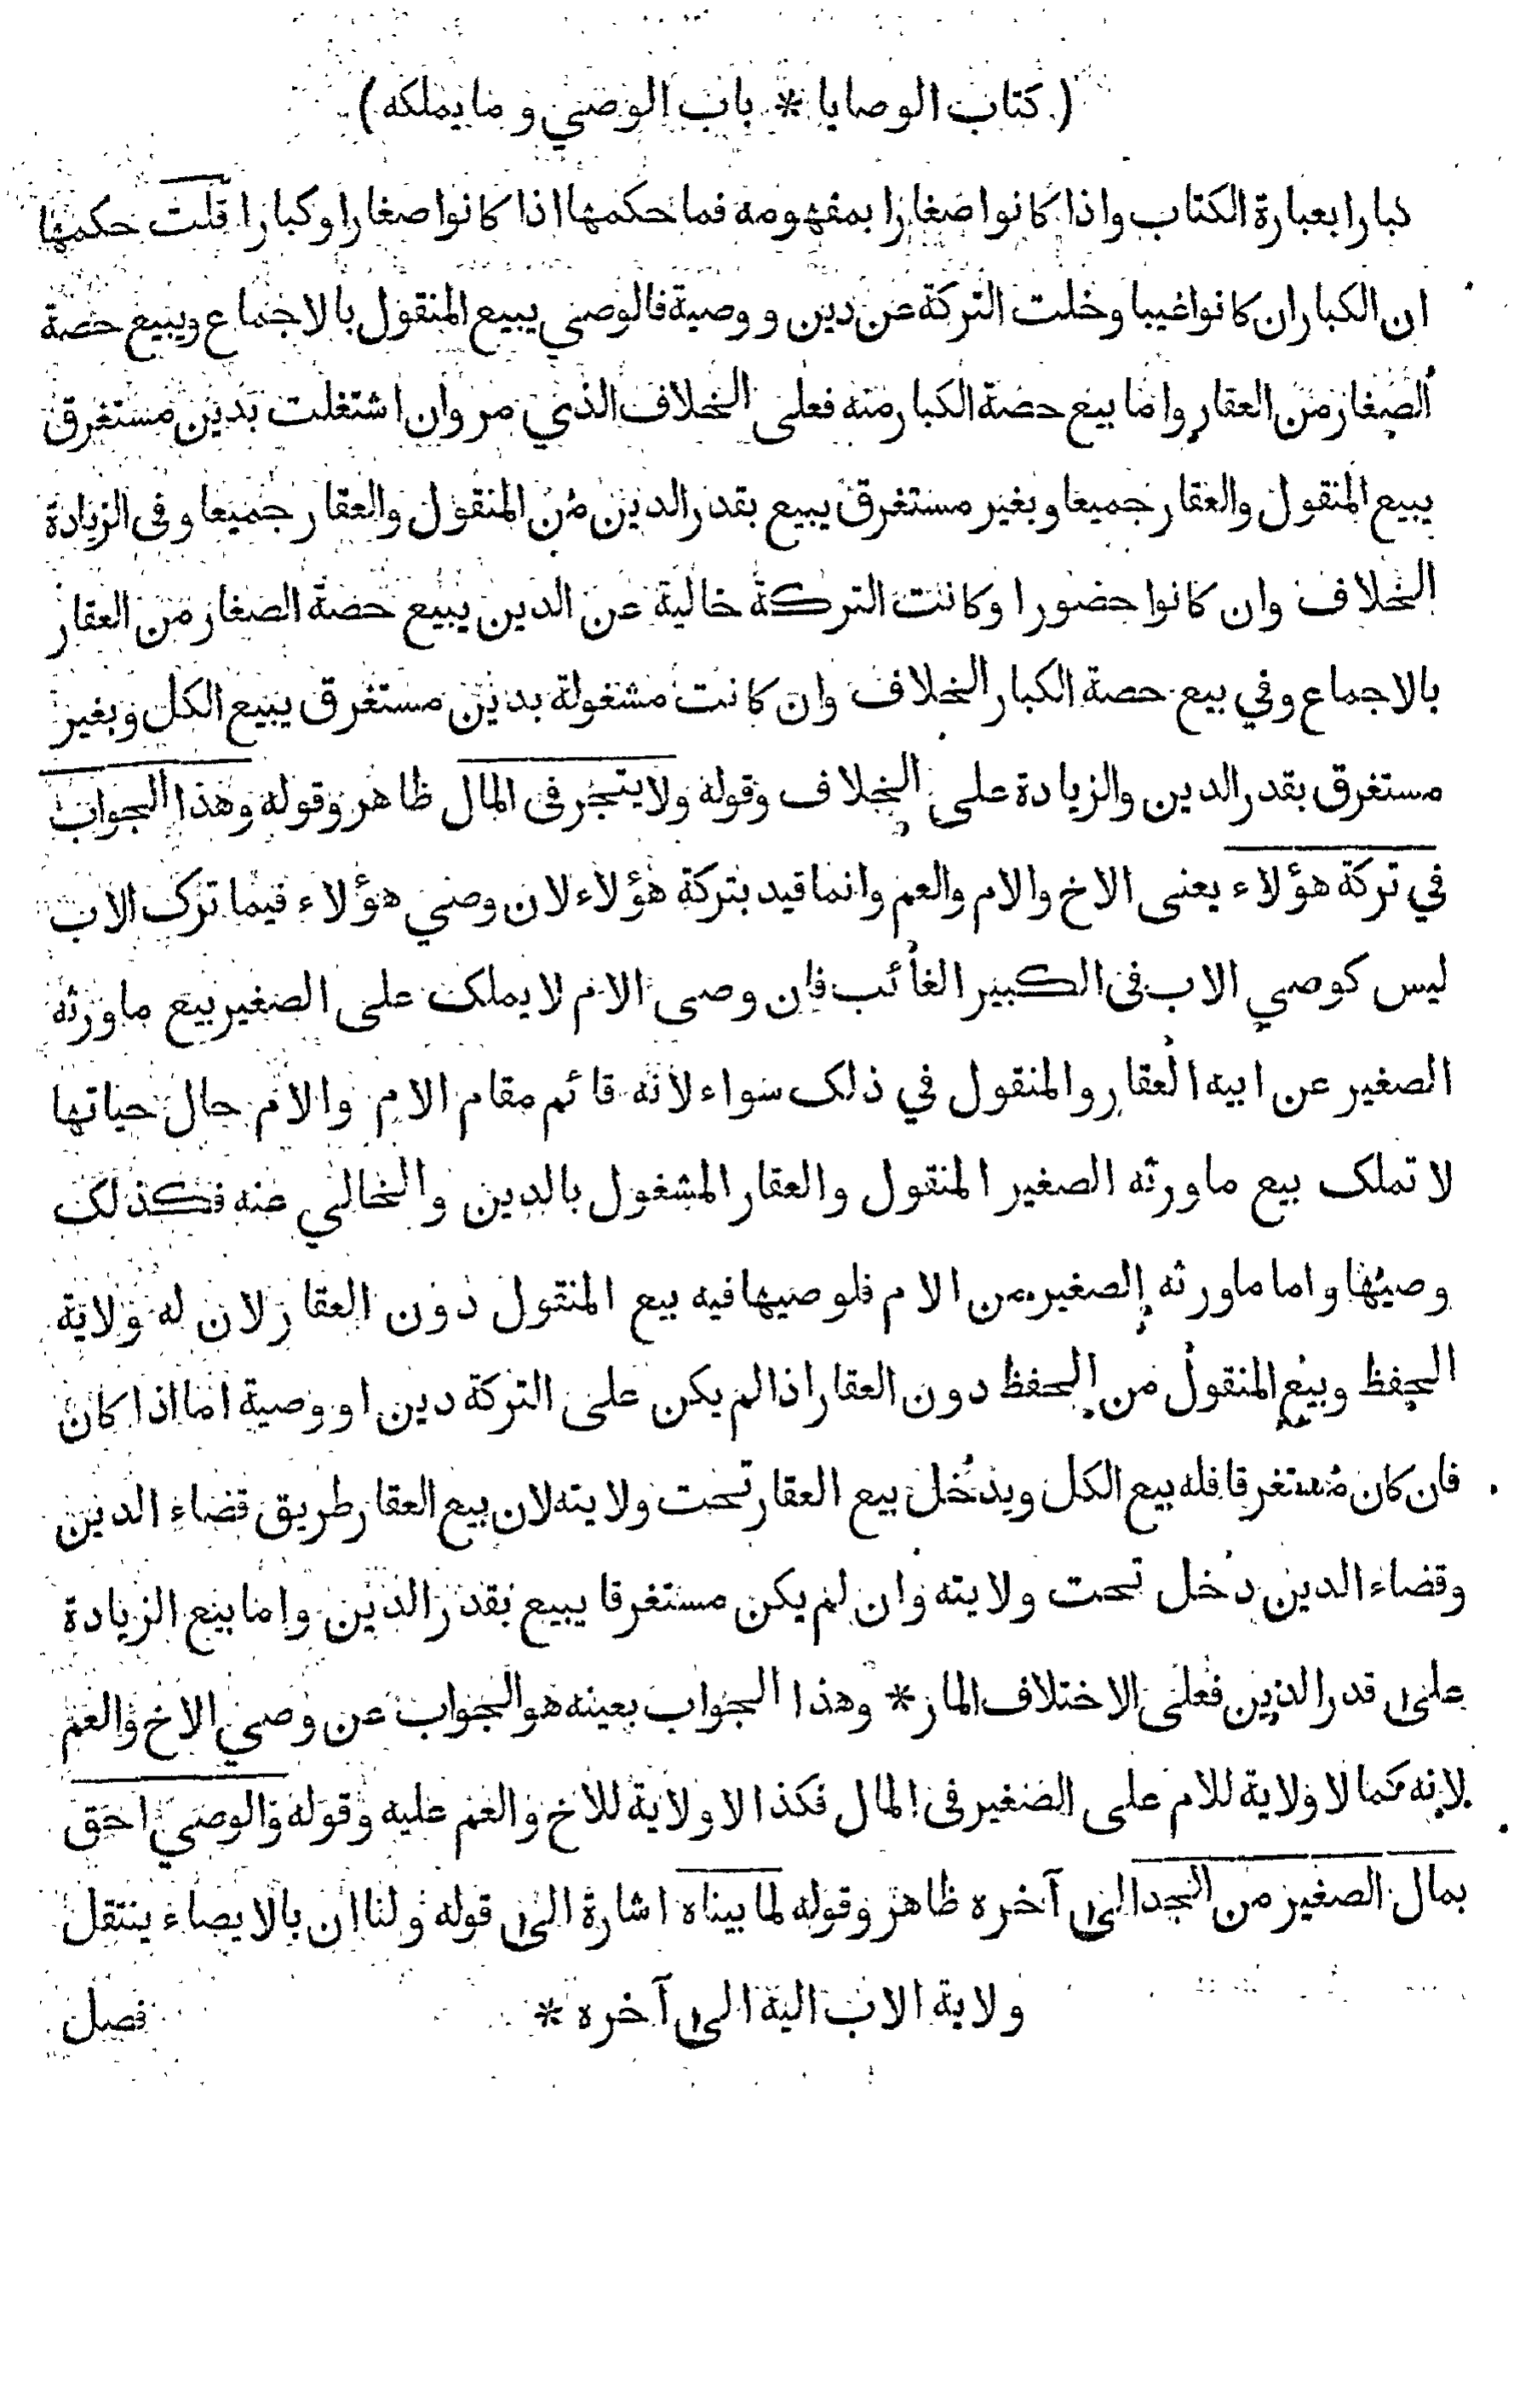 (كتاب الوصايا * باب الوصي و مايملكه)
كبارا بعبارة الكتاب واذا كانوا صغارا بمفهومه فما حكمها اذا كانوا صغارا وكبارا قلت حكمها
ان الكبار ان كانوا غيبا وخلت التركة عن دين و وصية فالوصي يبيع المنقول بالاجماع ويبيع حصة
الصغار من العقار واما بيع حصة الكبار منه فعلى الخلاف الذي مر وان اشتغلت بدين مستغرق
يبيع المنقول والعقار جميعا وبغير مستغرق يبيع بقدر الدين من المنقول والعقار جميعا وفى الزيادة
الخلاف وان كانوا حضورا وكانت التركة خالية عن الدين يبيع حصة الصغار من العقار
بالاجماع وفي بيع حصة الكبار الخلاف وان كانت مشغولة بدين مستغرق يبيع الكل وبغير
مستغرق بقدر الدين والزيادة على الخلاف وقوله ولايتجر فى المال ظاهر وقوله وهذا الجواب
في تركة هؤلاء يعنى الاخ والام والعم وانما قيد بتركة هؤلاء لان وصي هؤلاء فيما ترك الاب
ليس كوصي الاب فى الكبير الغائب فان وصى الام لا يملك على الصغير بيع ماورثه
الصغير عن ابيه العقار والمنقول في ذلك سواء لانه قائم مقام الام والام حال حياتها
لا تملك بيع ماورثه الصغير المنقول والعقار المشغول بالدين والخالي عنه فكذلك
وصيها واما ماورثه الصغير من الام فلوصيها فيه بيع المنقول دون العقار لان له ولاية
الحفظ وبيع المنقول من الحفظ دون العقار اذا لم يكن على التركة دين او وصية اما اذا كان
فان كان مستغرقا فله بيع الكل ويدخل بيع العقار تحت ولايته لان بيع العقار طريق قضاء الدين
وقضاء الدين دخل تحت ولايته وان لم يكن مستغرقا يبيع بقدر الدين واما بيع الزيادة
على قدر الدين فعلى الاختلاف المار * وهذا الجواب بعينه هو الجواب عن وصي الاخ والعم
لانه كما لا ولاية للام على الصغير فى المال فكذا لا ولاية للاخ والعم عليه وقوله والوصي احق
بمال الصغير من الجد الى آخره ظاهر وقوله لما بيناه اشارة الى قوله ولنا ان بالايصاء ينتقل
ولاية الاب اليه الى آخره *
فصل